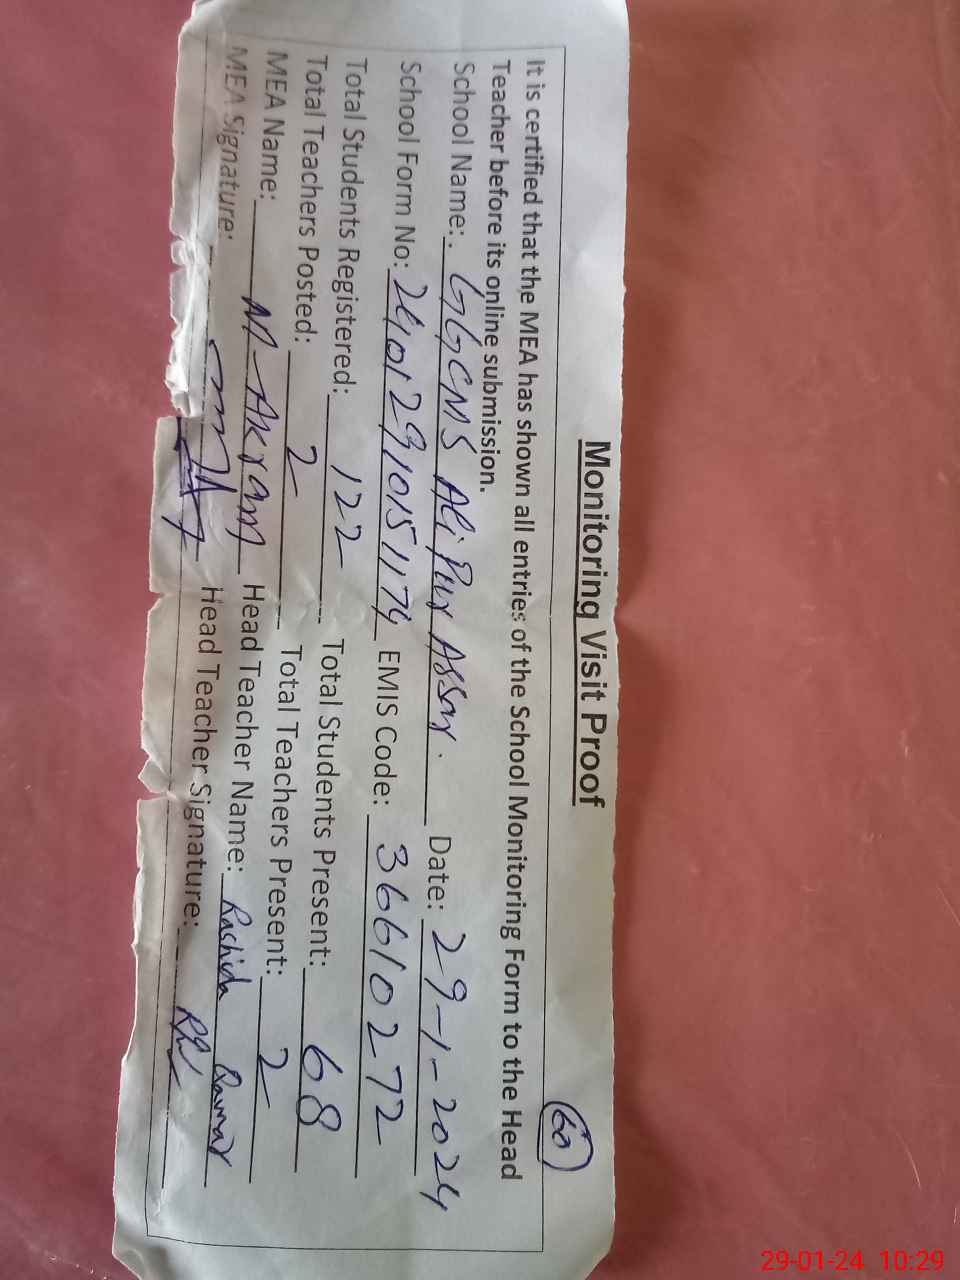 Monitoring Visit Proof
60
It is certified that the MEA has shown all entries of the School Monitoring Form to the Head
Teacher before its online submission.
School Name: GGCMS Ali Pur Assar. Date: 29-1-2024
School Form No: 24012910151174 EMIS Code: 36610272
Total Students Registered: 122 Total Students Present: 68
Total Teachers Posted: 2 Total Teachers Present: 2
MEA Name: M-Akram Head Teacher Name: Rashida
MEA Signature: Head Teacher Signature:
29-01-24 10:29